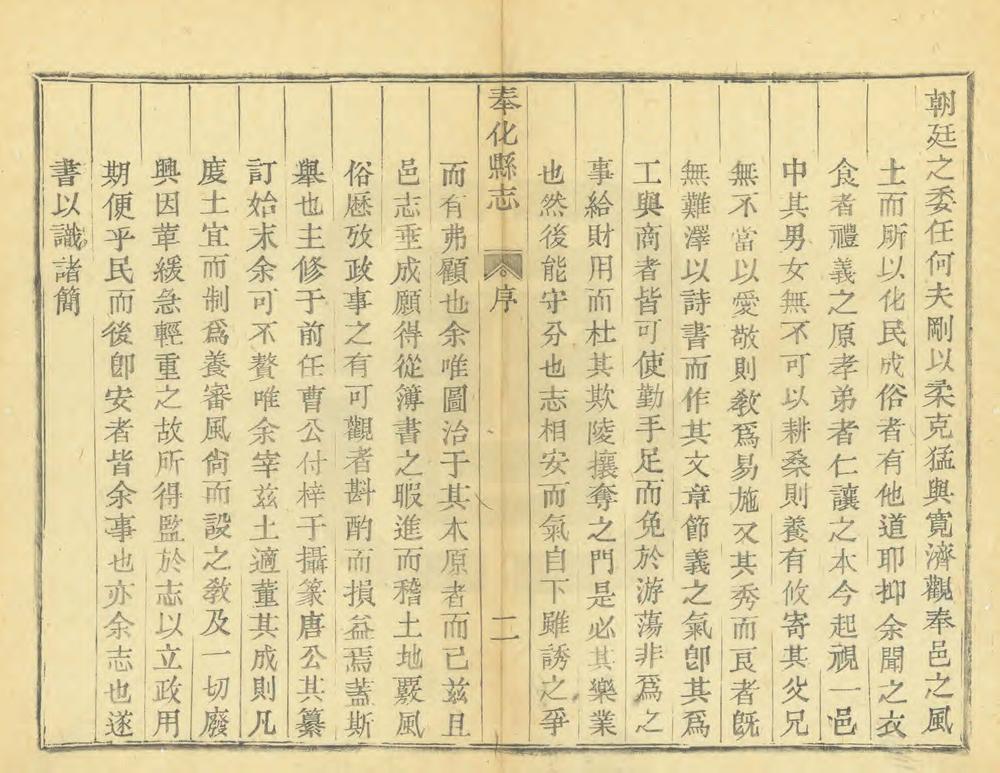 朝廷之委任何夫剛以柔克猛與寛濟觀奉邑之風
土而所以化民成俗者有他道耶抑余聞之衣
食者禮義之原孝弟者仁讓之本今起視一邑
中其男女無不可以耕桑則養有攸寄其父兄
無不當以愛敬則敎爲易施又其秀而良者旣
無難澤以詩書而作其文章節義之氣卽其爲
工與商者皆可使勤手足而免於游蕩非爲之
事給財用而杜其欺陵攘奪之門是必其樂業
也然後能守分也志相安而氣自下雖誘之爭
奉化縣志 序 二
而有弗顧也余唯圖治于其本原者而已兹且
邑志垂成願得從簿書之暇進而稽土地覈風
俗歷攷政事之有可觀者斟酌而損益焉蓋斯
舉也主修于前任曹公付梓于攝篆唐公其纂
訂始末余可不贅唯余宰兹土適董其成則凡
度土宜而制爲養審風尚而設之敎及一切廢
興因革緩急輕重之故所得監於志以立政用
期便乎民而後卽安者皆余事也亦余志也遂
書以識諸簡